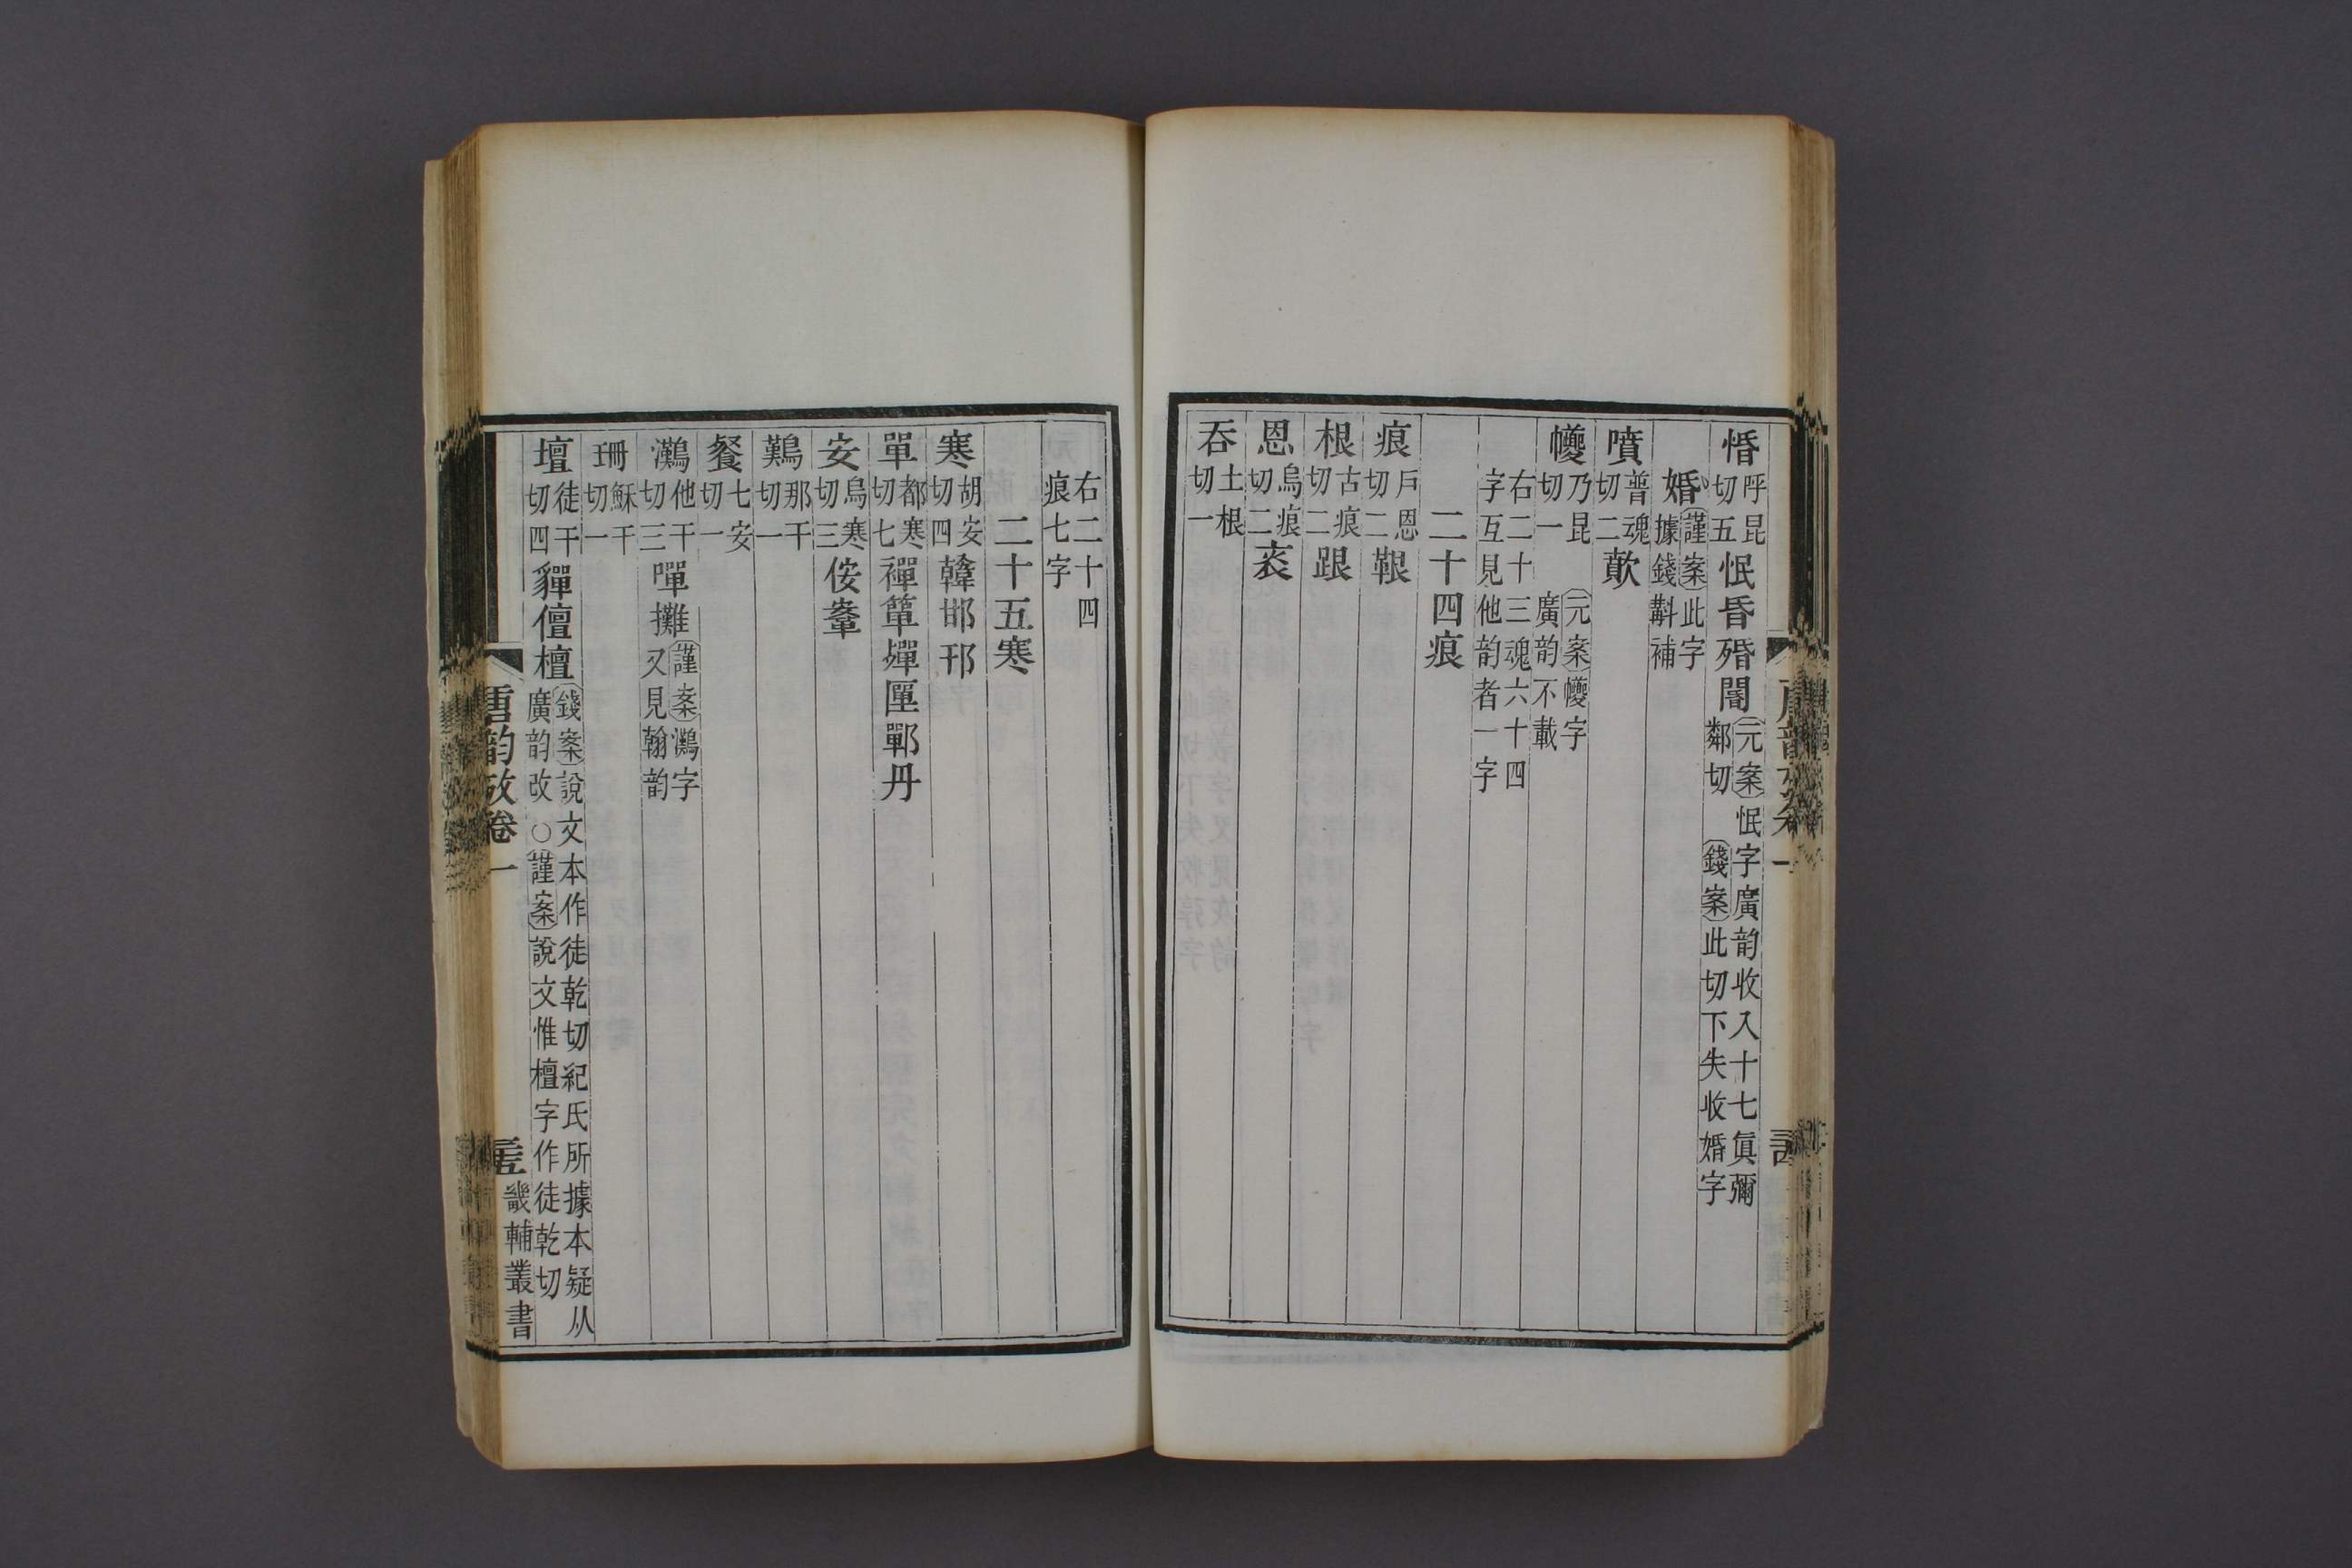 惛呼昆切五怋昏殙閽元案怋字廣韵收入十七眞彌鄰切 錢案此切下失收婚字
婚謹案此字據錢斠補
噴普魂切二歕
㡓乃昆切一 元案㡓字廣韵不載
右二十三魂六十四字互見他韵者一字
二十四痕
痕戶恩切二鞎
根古痕切二跟
恩烏痕切二衮
吞土根切一
右二十四痕七字
二十五寒
寒胡安切四韓邯邗
單都寒切七襌簞殫匰鄲丹
安烏寒切三侒䅁
鷬那干切一
餐七安切一
灘他干切三嘽攤謹案灘字又見翰韵
珊穌干切一
壇徒干切四貚儃檀錢案說文本作徒乾切紀氏所據本疑从廣韵改○謹案說文惟檀字作徒乾切
唐韵攷卷一
畿輔叢書